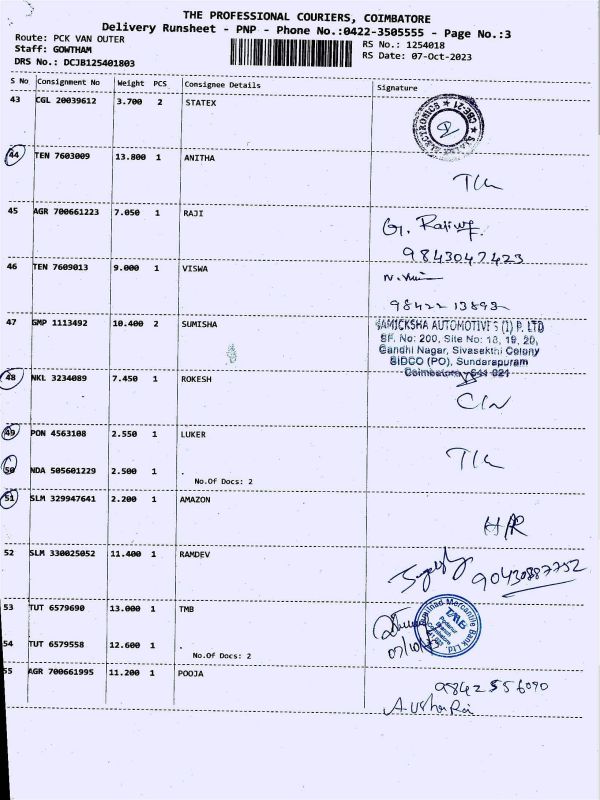 THE PROFESSIONAL COURIERS, COIMBATORE
Delivery Runsheet - PNP - Phone No.:0422-3505555 - Page No.:3
Route: PCK VAN OUTER
RS No.: 1254018
Staff: GOWTHAM
RS Date: 07-Oct-2023
DRS No.: DCJB125401803
S No Consignment No Weight PCS Consignee Details Signature
43 CGL 20039612 3.700 2 STATEX
44 TEN 7603009 13.800 1 ANITHA
45 AGR 700661223 7.050 1 RAJI
G. Raji
9843047423
46 TEN 7609013 9.000 1 VISWA
98422 13893
47 GMP 1113492 10.400 2 SUMISHA
SAMICKSHA AUTOMOTIVES (I) P. LTD
SF. No: 200, Site No: 18, 19, 20,
Gandhi Nagar, Sivasakthi Colony
SIDCO (PO), Sundarapuram
Coimbatore - 641 021
48 NKL 3234089 7.450 1 ROKESH
49 PON 4563108 2.550 1 LUKER
50 NDA 505601229 2.500 1 .
No.Of Docs: 2
51 SLM 329947641 2.200 1 AMAZON
52 SLM 330025052 11.400 1 RAMDEV
90430887752
53 TUT 6579690 13.000 1 TMB
Tamilnad Mercantile Bank Ltd.
TMB
07/10/23
54 TUT 6579558 12.600 1 .
No.Of Docs: 2
55 AGR 700661995 11.200 1 POOJA
98425 56090